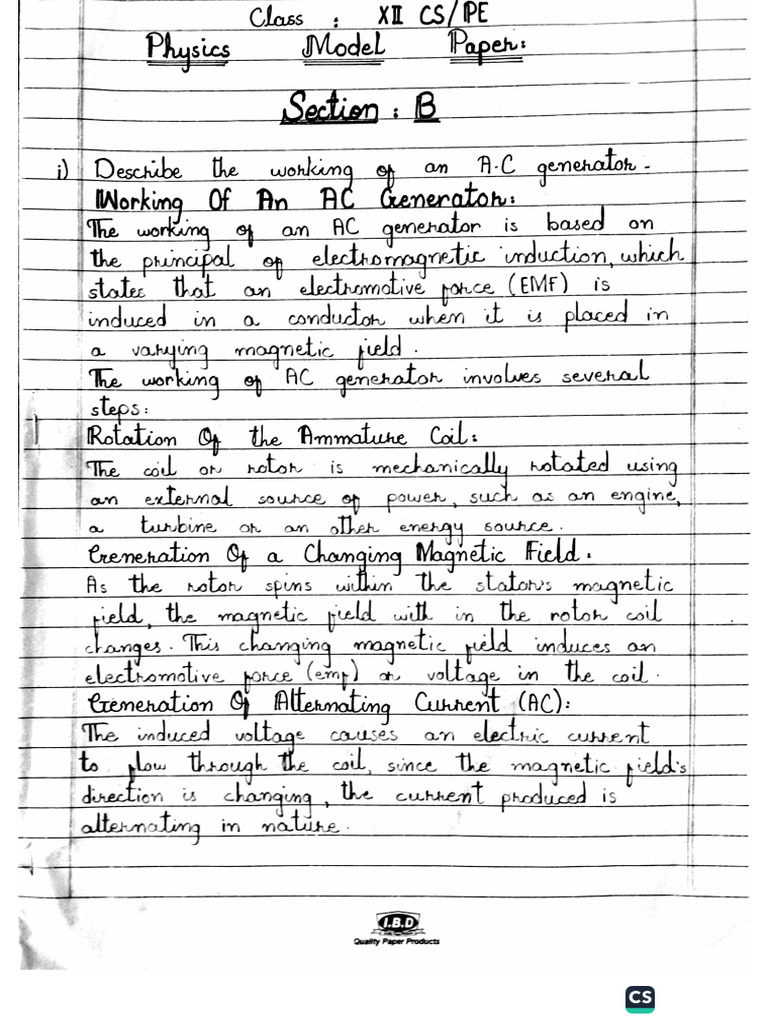 Class : XII CS/PE
Physics Model Paper:
Section : B
i) Describe the working of an A.C generator.
Working Of An AC Generator:
The working of an AC generator is based on
the principal of electromagnetic induction, which
states that an electromotive force (EMF) is
induced in a conductor when it is placed in
a varying magnetic field.
The working of AC generator involves several
steps:
Rotation Of the Ammature Coil:
The coil or rotor is mechanically rotated using
an external source of power, such as an engine,
a turbine or an other energy source.
Generation Of a Changing Magnetic Field.
As the rotor spins within the stator's magnetic
field, the magnetic field with in the rotor coil
changes. This changing magnetic field induces an
electromotive force (emf) or voltage in the coil.
Generation Of Alternating Current (AC):
The induced voltage causes an electric current
to flow through the coil, since the magnetic field's
direction is changing, the current produced is
alternating in nature.
I.B.D
Quality Paper Products
CS